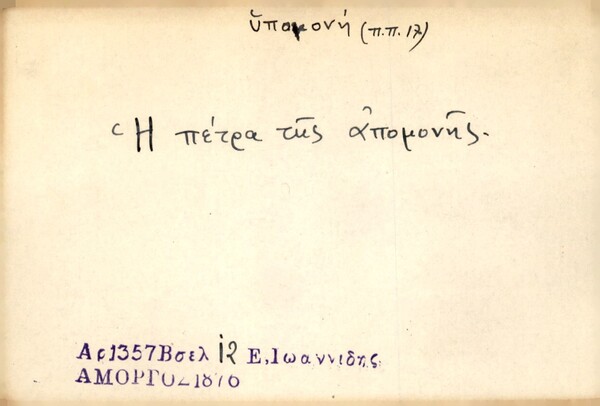 ὑπομονή (π.π. 17)
Ἡ πέτρα τῆς ἀπομονῆς.
Αρ1357Βσελ 12 Ε,Ιωαννιδης
ΑΜΟΡΓΟΣ1876